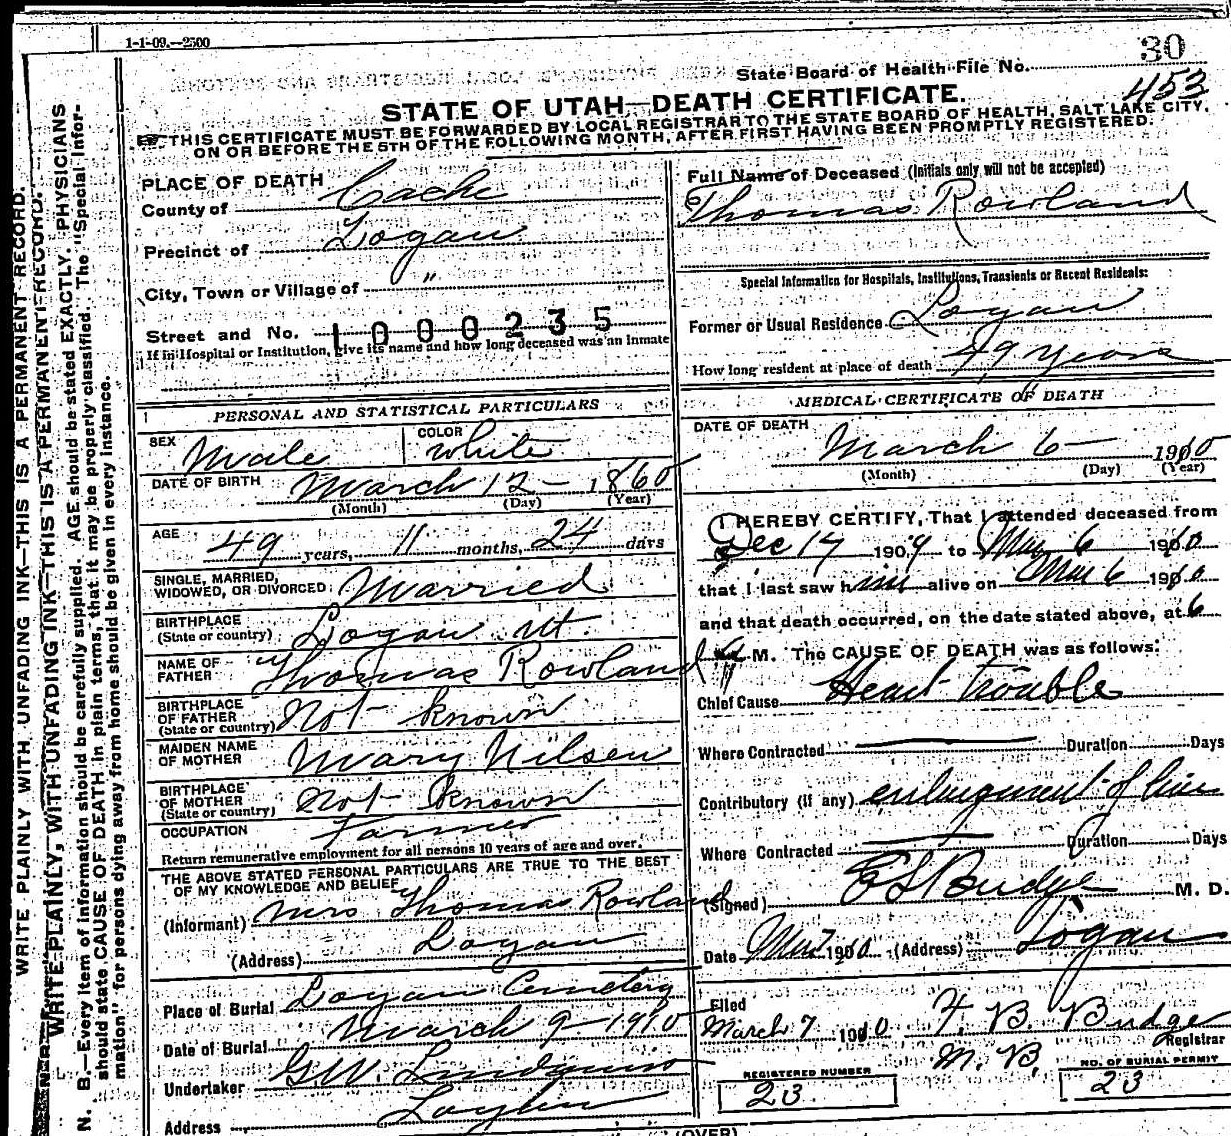 1-1-09.—2500
30
State Board of Health File No.
453
STATE OF UTAH—DEATH CERTIFICATE.
THIS CERTIFICATE MUST BE FORWARDED BY LOCAL REGISTRAR TO THE STATE BOARD OF HEALTH, SALT LAKE CITY,
ON OR BEFORE THE 5TH OF THE FOLLOWING MONTH, AFTER FIRST HAVING BEEN PROMPTLY REGISTERED.
WRITE PLAINLY WITH UNFADING INK—THIS IS A PERMANENT RECORD.
WRITE PLAINLY, WITH UNFADING INK—THIS IS A PERMANENT RECORD.
N. B.—Every item of information should be carefully supplied. AGE should be stated EXACTLY. PHYSICIANS
should state CAUSE OF DEATH in plain terms, that it may be properly classified. The "Special Infor-
mation" for persons dying away from home should be given in every instance.
PLACE OF DEATH
County of Cache
Precinct of Logan
City, Town or Village of "
Street and No. 1000235
If in Hospital or Institution, give its name and how long deceased was an Inmate
PERSONAL AND STATISTICAL PARTICULARS
SEX Male COLOR White
DATE OF BIRTH March 12 - 1860
(Month) (Day) (Year)
AGE 49 years, 11 months, 24 days
SINGLE, MARRIED,
WIDOWED, OR DIVORCED Married
BIRTHPLACE
(State or country) Logan Ut.
NAME OF
FATHER Thomas Rowland
BIRTHPLACE
OF FATHER
(State or country) Not known
MAIDEN NAME
OF MOTHER Mary Nilsen
BIRTHPLACE
OF MOTHER
(State or country) Not known
OCCUPATION Farmer
Return remunerative employment for all persons 10 years of age and over.
THE ABOVE STATED PERSONAL PARTICULARS ARE TRUE TO THE BEST
OF MY KNOWLEDGE AND BELIEF
(Informant) Mrs Thomas Rowland
(Address) Logan
Place of Burial Logan Cemetery
Date of Burial March 9 - 1910
Undertaker G.W. Lindquist
Address Logan
Full Name of Deceased (Initials only will not be accepted)
Thomas Rowland
Special Information for Hospitals, Institutions, Transients or Recent Residents:
Former or Usual Residence Logan
How long resident at place of death 49 years
MEDICAL CERTIFICATE OF DEATH
DATE OF DEATH
March 6 - 1910
(Month) (Day) (Year)
I HEREBY CERTIFY, That I attended deceased from
Dec 17 1909 to Mar 6 1910
that I last saw him alive on Mar 6 1910
and that death occurred, on the date stated above, at 6
M. The CAUSE OF DEATH was as follows:
Chief Cause Heart trouble
Where Contracted Duration Days
Contributory (if any) enlargment of liver
Where Contracted Duration Days
(Signed) E S Budge M. D.
Date Mar 7 1910 (Address) Logan
Filed
March 7 1910 F. B. Budge
M. B. Registrar
REGISTERED NUMBER
23
NO. OF BURIAL PERMIT
23
(OVER)